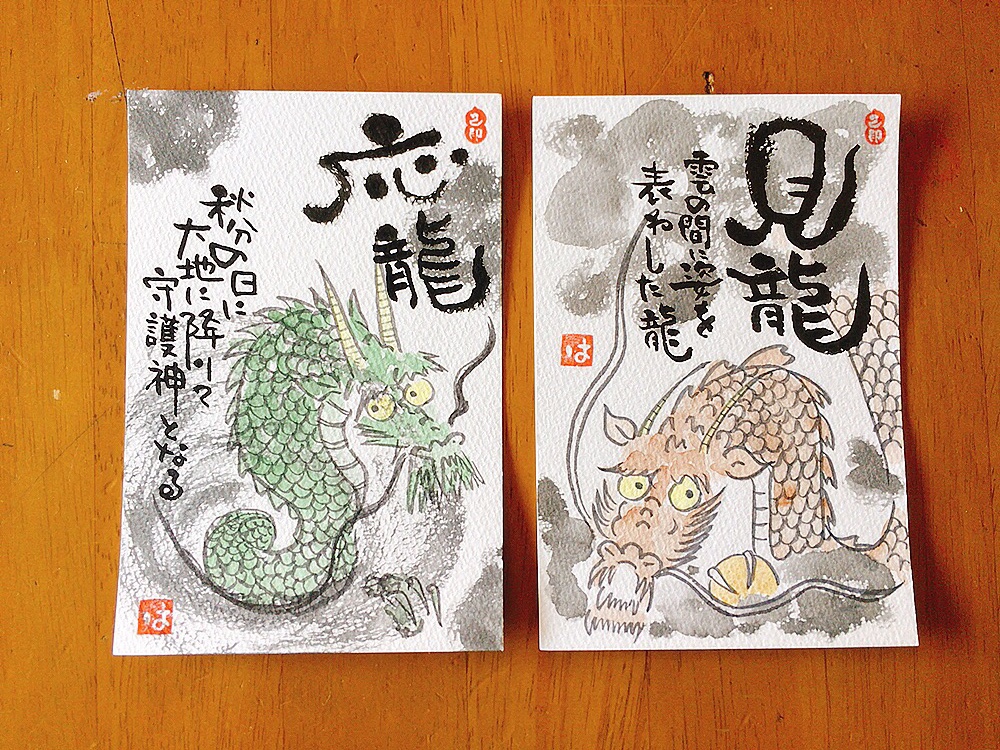 応龍
秋分の日に
大地に降りて
守護神となる
は
見龍
雲の間に姿を
表わした龍
は